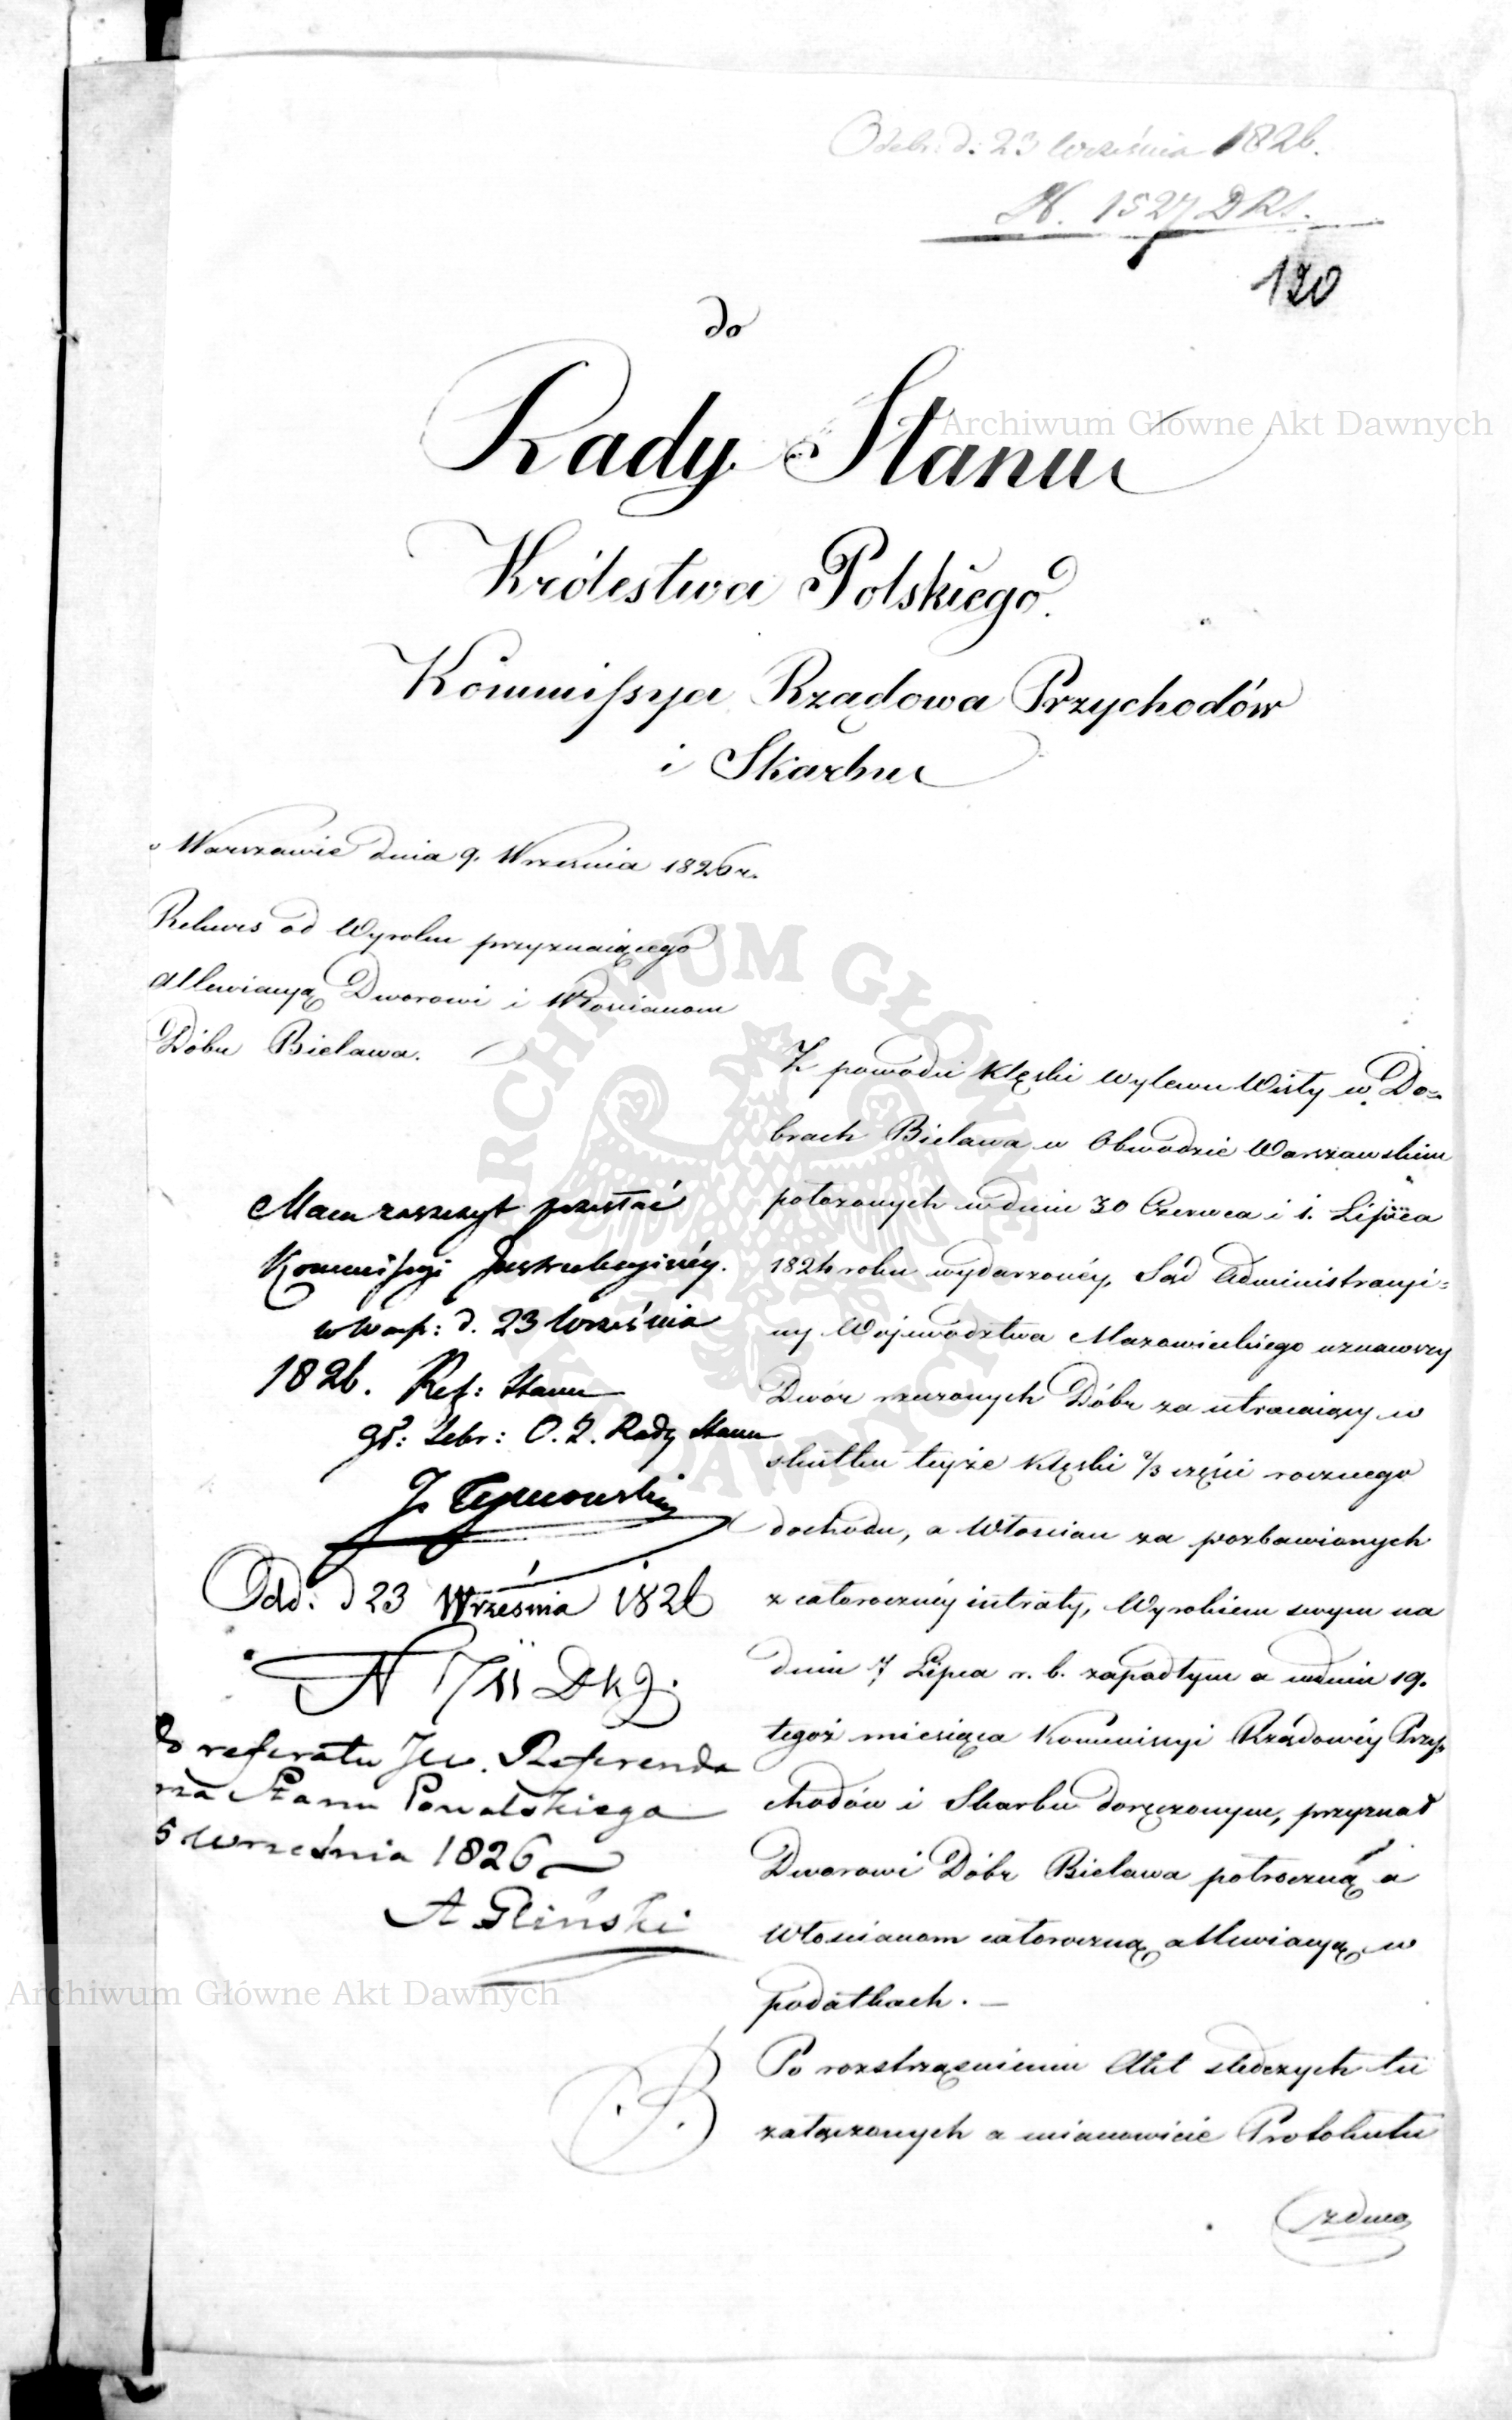 Odebr: d: 23 Września 1826.
N. 1527 DRS.
120
do
Rady Stanu
Królestwa Polskiego.
Kommissya Rządowa Przychodów
i Skarbu
w Warszawie dnia 9. Września 1826 r.
Rekurs od Wyroku przyznaiącego
allewiacyą Dworowi i Włościanom
Dóbr Bielawa.
Z powodu klęski wylewu Wisły w Do=
brach Bielawa w Obwodzie Warszawskim
położonych w dniu 30 Czerwca i 1. Lipca
1824 roku wydarzonéy, Sąd Administracyi=
ny Województwa Mazowieckiego uznawszy
Dwór rzeczonych Dóbr za utracaiący w
skutku teyże klęski 2/3 części rocznego
dochodu, a Włościan za pozbawionych
z całorocznéy intraty, Wyrokiem swym na
dniu 7 Lipca r. b. zapadłym a w dniu 19.
tegoż miesiąca Kommissyi Rządowéy Przy=
chodów i Skarbu doręczonym, przyznał
Dworowi Dóbr Bielawa półroczną a
Włościanom całoroczną allewiacyą w
podatkach. —
Po roztrząśnieniu Akt śledczych tu
załączonych a mianowicie Protokułu
z dnia
Mam zaszczyt przesłać
Kommissyi Instrukcyinéy.
w Warsz: d. 23 Września
1826. Ref: Stanu
Odd: d 23 Września 1826
N
Do referatu JW. Referenda
rza Stanu Kowalskiego
5 Września 1826
A Gliński
Archiwum Główne Akt Dawnych
ARCHIWUM GŁÓWNE AKT DAWNYCH
Archiwum Główne Akt Dawnych